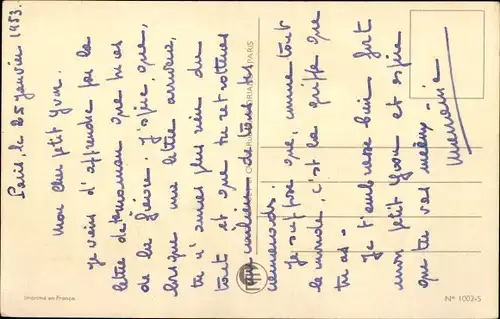 Paris, le 25 Janvier 1953.
Mon cher petit Yvon.
Je viens d'apprendre par la
lettre de ta maman que tu as
de la fièvre. J'espère que,
lorsque ma lettre arrivera,
tu n'auras plus rien du
tout et que tu retrouveras
milieu de tous tes
camarades.
Je suppose que, comme tout
le monde, c'est la grippe que
tu as.
Je t'embrasse bien fort
mon petit Yvon et espère
que tu vas mieux.
Imprimé en France
PARIS
N° 1003-S